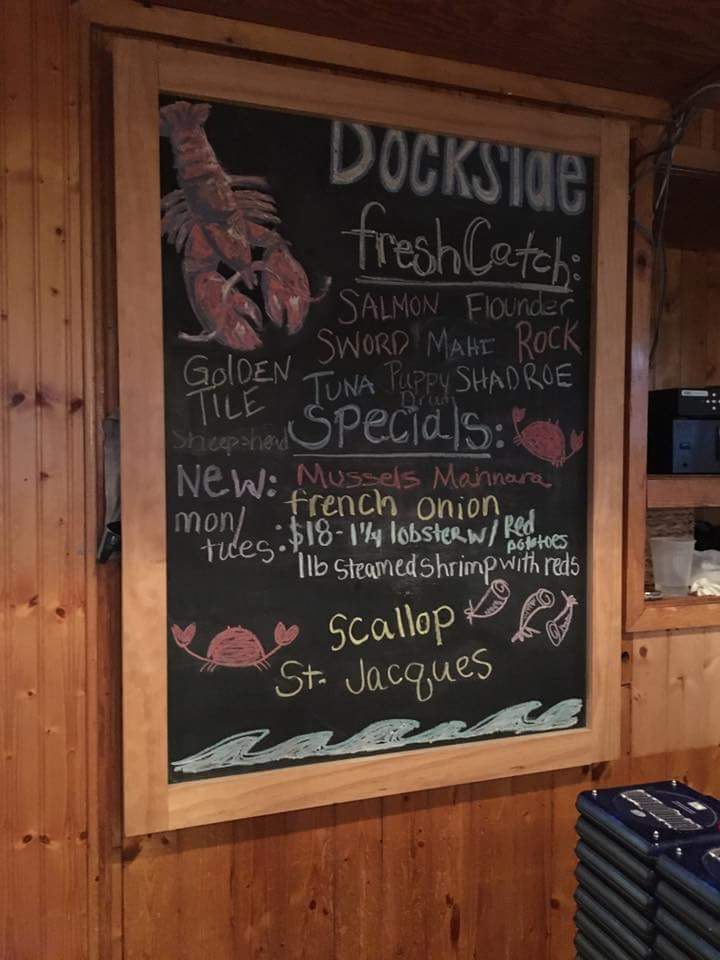 Dockside
fresh Catch:
SALMON Flounder
SWORD MAHI ROCK
GOlDEN TILE
TUNA Puppy Drum SHAD ROE
Sheepshead
Specials:
New: Mussels Marinara
french onion
mon/ tues: $18 - 1 1/4 lobster w/ Red potatoes
1lb steamed shrimp with reds
Scallop
St. Jacques